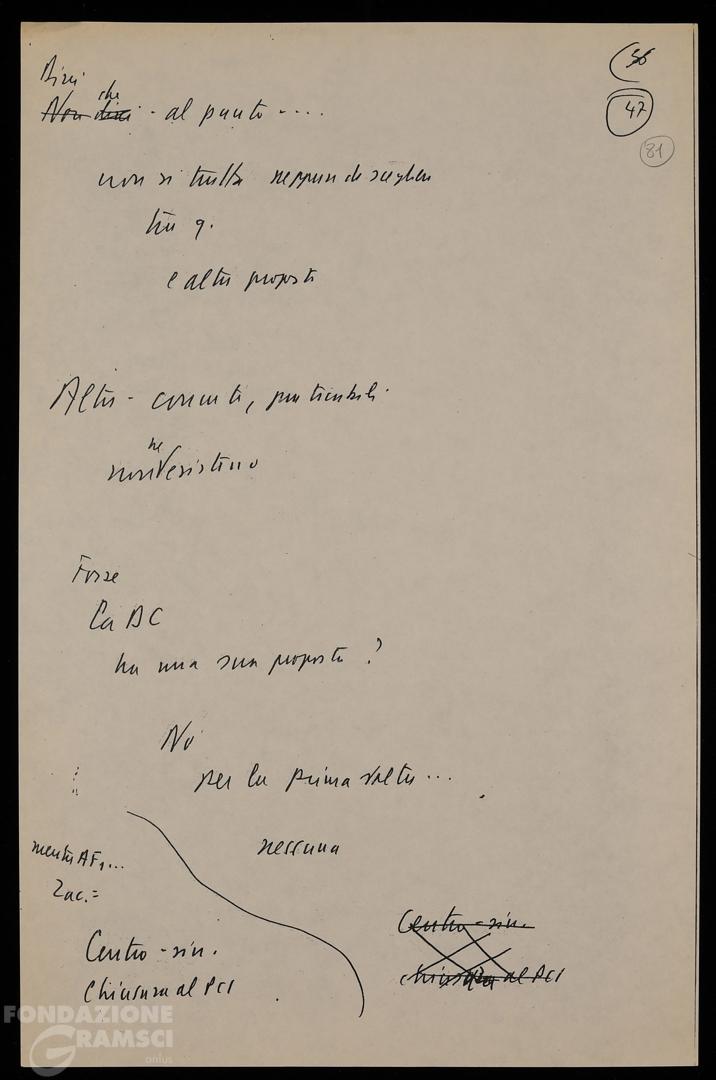 (36
47
81
Direi che
Non direi - al punto ....
non si tratta neppure di scegliere
tra q.
e altre proposte
Altre - concrete, praticabili -
non ne esistono
Forse
la DC
ha una sua proposta ?
No
per la prima volta ...
nessuna
mentre AF, ...
Zac. =
Centro - sin.
Chiusura al PCI
Centro - sin.
chiusura al PCI
FONDAZIONE
GRAMSCI
onlus